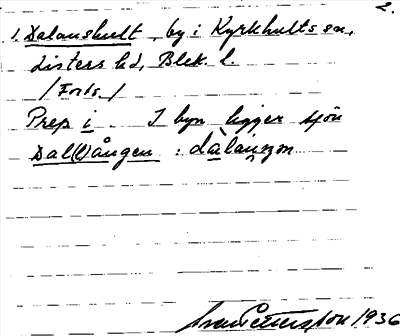 2.
1. Dalanshult, by i Kyrkhults sn,
Listers hd, Blek. l.
/Forts./
Prep i. I byn ligger sjön
Dal(l)ången : dalaŋən
Pettersson 1936